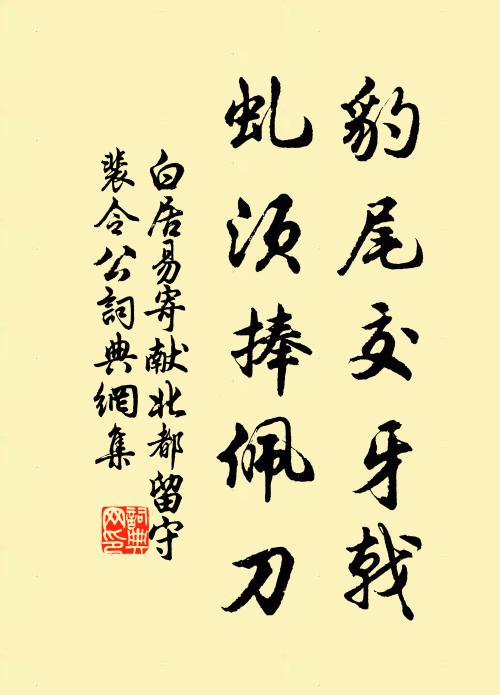 豹尾交牙戟
虬须捧佩刀
白居易寄献北都留守
裴令公詞典網集
詞典网印